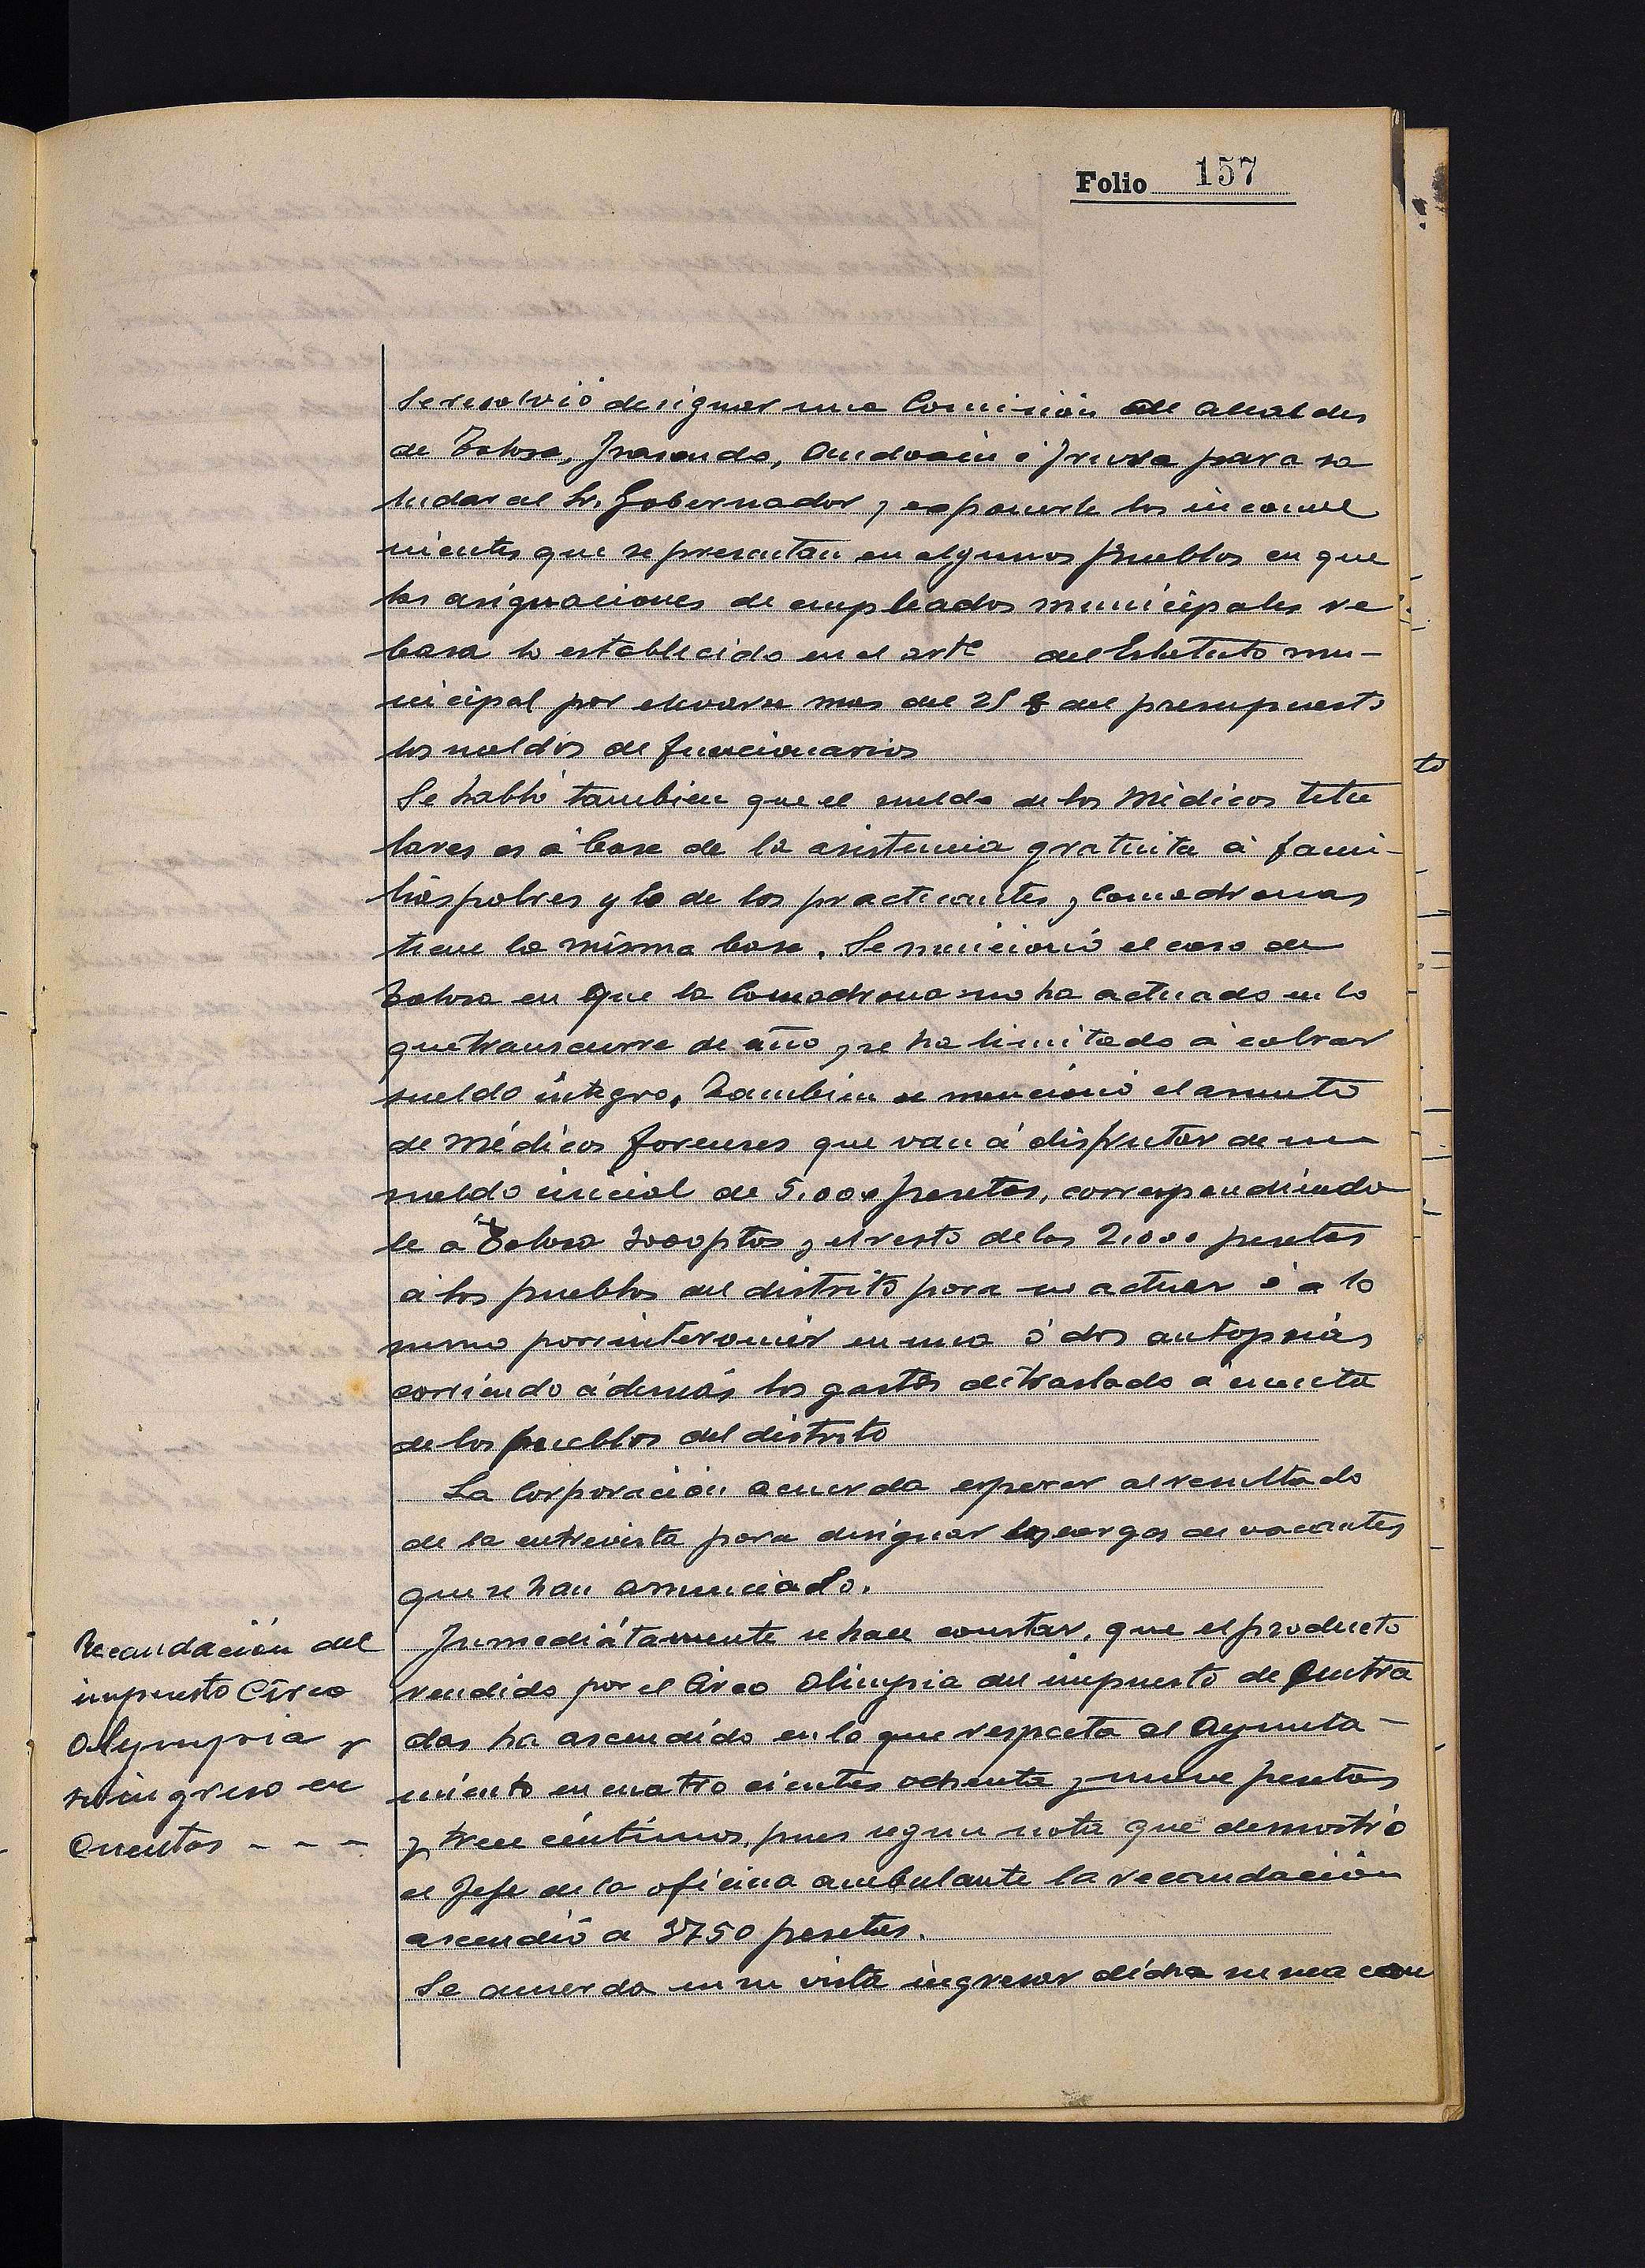 Folio 157
Se resolvió designar una Comision de alcaldes
de Tolosa, Irasondo, Andoain é Irura para sa
ludar al Sr. Gobernador y exponerle los inconve
nientes que se presentan en algunos pueblos en que
las asignaciones de empleados municipales re
basa lo establecido en el artº del Estatuto mu-
nicipal por elevarse mas del 25 % del presupuesto
los sueldos de funcionarios
Se habló tambien que el sueldo de los Médicos titu
lares es á base de la asistencia gratuita á fami-
lias pobres y la de los practicantes y Comadronas
tiene la misma base. Se mencionó el caso de
Tolosa en que la Comadrona no ha actuado en lo
que transcurre de año y se ha limitado á cobrar
sueldo integro. Tambien se mencionó el asunto
de Médicos forenses que van á disfrutar de un
sueldo inicial de 5.000 pesetas, correspondiendo
le a Tolosa 3000 ptas y el resto de las 2.000 pesetas
á los pueblos del distrito para no actuar ó a lo
sumo por intervenir en una ó dos autopsias
corriendo ádemás los gastos de traslado a cuenta
de los pueblos del distrito
La Corporación acuerda esperar al resultado
de la entrevista para designar los cargos de vacantes
que se han anunciado.
Recaudación del
impuesto Circo
Olympia y
su ingreso en
Cuentas - - -
Inmediátamente se hace constar, que el producto
rendido por el Circo Olimpia del impuesto de Entra
das ha ascendido en lo que respecta al Ayunta-
miento en cuatro cientas ochenta y nueve pesetas
y trece céntimos, pues segun nota que demostró
el Jefe de la oficina ambulante la recaudación
ascendió a 3750 pesetas.
Se acuerda en su vista ingresar dicha suma con